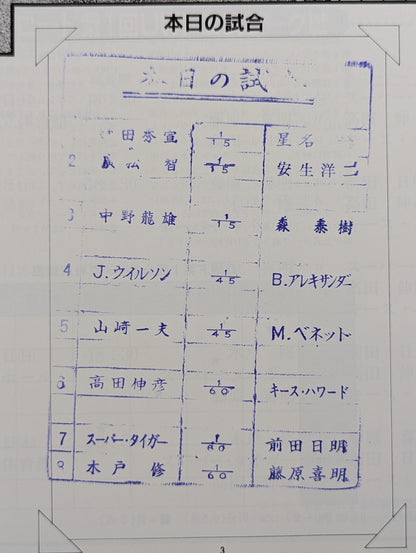 本日の試合
本日の試
田秀宣 1/15 星名
2 智 1/15 安生洋二
3 中野龍雄 1/15 森泰樹
4 J.ウイルソン 1/45 B.アレキサンダー
5 山崎一夫 1/45 M.ベネット
6 高田伸彦 1/60 キース・ハワード
7 スーパー・タイガー 1/60 前田日明
8 木戸修 1/60 藤原喜明
3